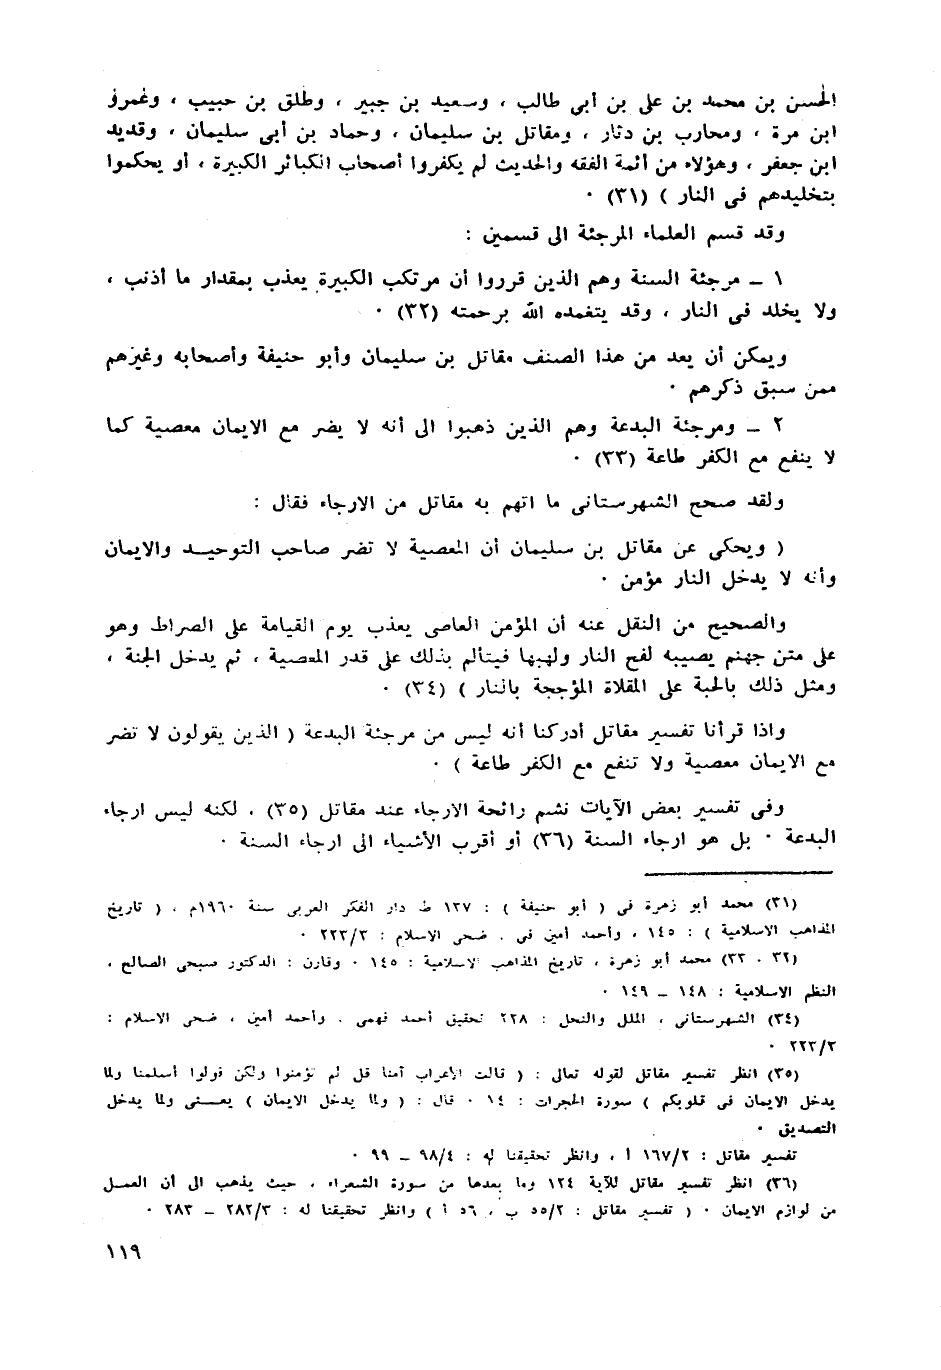 الحسن بن محمد بن على بن أبي طالب ، وسعيد بن جبير ، وطلق بن حبيب ، وعمرو
ابن مرة ، ومحارب بن دثار ، ومقاتل بن سليمان ، وحماد بن أبى سليمان ، وقديد
ابن جعفر ، وهؤلاء من أئمة الفقه والحديث لم يكفروا أصحاب الكبائر الكبيرة ، أو يحكموا
بتخليدهم فى النار ) (٣١) ٠
وقد قسم العلماء المرجئة الى قسمين :
١ ــ مرجئة السنة وهم الذين قرروا أن مرتكب الكبيرة يعذب بمقدار ما أذنب ،
ولا يخلد فى النار ، وقد يتغمده الله برحمته (٣٢) ٠
ويمكن أن يعد من هذا الصنف مقاتل بن سليمان وأبو حنيفة وأصحابه وغيرهم
ممن سبق ذكرهم ٠
٢ ــ ومرجئة البدعة وهم الذين ذهبوا الى أنه لا يضر مع الايمان معصية كما
لا ينفع مع الكفر طاعة (٣٣) ٠
ولقد صحح الشهرستانى ما اتهم به مقاتل من الارجاء فقال :
( ويحكى عن مقاتل بن سليمان أن المعصية لا تضر صاحب التوحيــد والايمان
وأنه لا يدخل النار مؤمن ٠
والصحيح من النقل عنه أن المؤمن العاصى يعذب يوم القيامة على الصراط وهو
على متن جهنم يصيبه لفح النار ولهبها فيتألم بذلك على قدر المعصية ، ثم يدخل الجنة ،
ومثل ذلك بالحبة على المقلاة المؤججة بالنار ) (٣٤) ٠
واذا قرأنا تفسير مقاتل أدركنا أنه ليس من مرجئة البدعة ( الذين يقولون لا تضر
مع الايمان معصية ولا تنفع مع الكفر طاعة ) ٠
وفى تفسير بعض الآيات نشم رائحة الارجاء عند مقاتل (٣٥) ، لكنه ليس ارجاء
البدعة ٠ بل هو ارجاء السنة (٣٦) أو أقرب الأشياء الى ارجاء السنة ٠
(٣١) محمد أبو زهرة فى ( أبو حنيفة ) : ١٢٧ ط دار الفكر العربى سنة ١٩٦٠م ، ( تاريخ
المذاهب الاسلامية ) : ١٤٥ ، وأحمد أمين فى . ضحى الاسلام : ٢٢٢/٣ ٠
(٣٢ ، ٣٣) محمد أبو زهرة ، تاريخ المذاهب الاسلامية : ١٤٥ ٠ وقارن : الدكتور صبحى الصالح ،
النظم الاسلامية : ١٤٨ ــ ١٤٩ ٠
(٣٤) الشهرستانى ، الملل والنحل : ٢٢٨ تحقيق أحمد فهمى . وأحمد أمين ، ضحى الاسلام :
٢٢٢/٢ ٠
(٣٥) انظر تفسير مقاتل لقوله تعالى : ( قالت الأعراب آمنا قل لم تؤمنوا ولكن قولوا أسلمنا ولما
يدخل الايمان فى قلوبكم ) سورة الحجرات : ١٤ ٠ قال : ( ولما يدخل الايمان ) يعــنى ولما يدخل
التصديق ٠
تفسير مقاتل : ١٦٧/٢ أ ، وانظر تحقيقنا له : ٩٨/٤ ــ ٩٩ ٠
(٣٦) انظر تفسير مقاتل للآية ١٢٤ وما بعدها من سورة الشعراء ، حيث يذهب الى أن العمــل
من لوازم الايمان ٠ ( تفسير مقاتل : ٥٥/٢ ب ، ٥٦ أ ) وانظر تحقيقنا له : ٢٨٢/٣ ــ ٢٨٣ ٠
١١٩